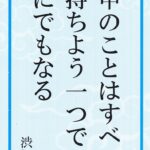 中のことはすべ
持ちよう一つで
にでもなる
渋